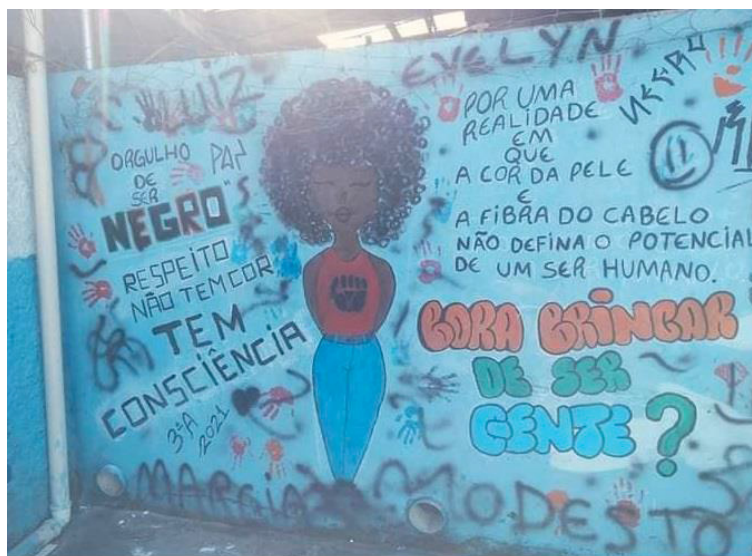 LUIZ
EVELYN
ORGULHO
DE
SER
NEGRO"S
PAZ
RESPEITO
NÃO TEM COR
TEM
CONSCIÊNCIA
3ºA
2021
POR UMA
REALIDADE
EM
QUE
A COR DA PELE
E
A FIBRA DO CABELO
NÃO DEFINA O POTENCIAL
DE UM SER HUMANO.
NEGRO
BORA BRINCAR
DE SER
GENTE?
MARCIA
MODESTO